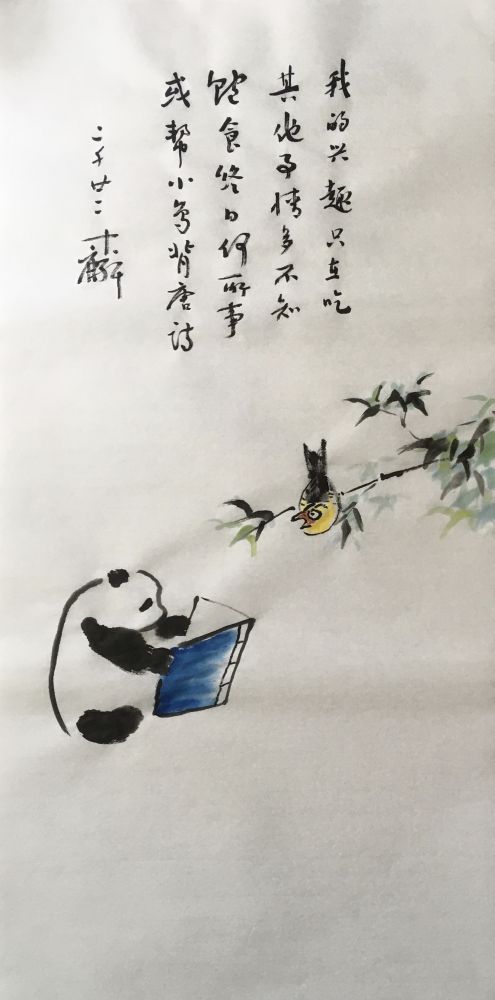 我的兴趣只在吃
其他事情多不知
饱食终日何所事
或帮小鸟背唐诗
二千廿二